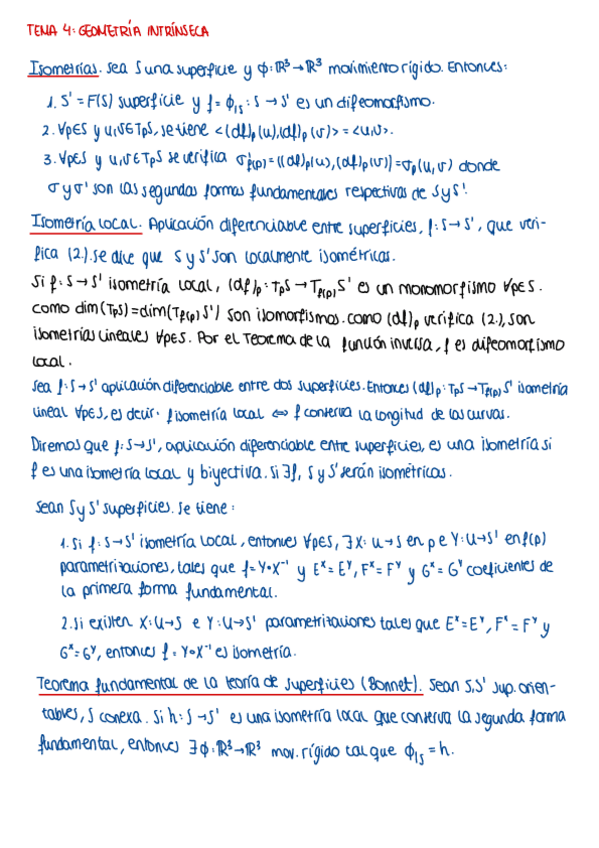 TEMA 4: GEOMETRÍA INTRÍNSECA
Isometrías. Sea S una superficie y ϕ: ℝ³→ℝ³ movimiento rígido. Entonces:
1. S' = F(S) superficie y f = ϕ|S : S → S' es un difeomorfismo.
2. ∀p∈S y u,v∈TpS, se tiene <(df)p(u),(df)p(v)> = <u,v>.
3. ∀p∈S y u,v∈TpS se verifica σ'f(p) = ((df)p(u),(df)p(v)) = σp(u,v) donde
σ y σ' son las segundas formas fundamentales respectivas de S y S'.
Isometría local. Aplicación diferenciable entre superficies, f: S→S', que veri-
fica (2.). Se dice que S y S' son localmente isométricas.
Si f: S→S' isometría local, (df)p: TpS → Tf(p)S' es un monomorfismo ∀p∈S.
como dim(TpS) = dim(Tf(p)S') son isomorfismos. como (df)p verifica (2.), son
isometrías lineales ∀p∈S. Por el Teorema de la función inversa, f es difeomorfismo
local.
Sea f: S→S' aplicación diferenciable entre dos superficies. Entonces (df)p: TpS→Tf(p)S' isometría
lineal ∀p∈S, es decir: f isometría local ⇔ f conserva la longitud de las curvas.
Diremos que f: S→S', aplicación diferenciable entre superficies, es una isometría si
f es una isometría local y biyectiva. Si ∃f, S y S' serán isométricas.
Sean S y S' superficies. Se tiene:
1. Si f: S→S' isometría local, entonces ∀p∈S, ∃ X: U→S en p e Y: U→S' en f(p)
parametrizaciones, tales que f = Y∘X⁻¹ y Eˣ = Eʸ, Fˣ = Fʸ y Gˣ = Gʸ coeficientes de
la primera forma fundamental.
2. Si existen X: U→S e Y: U→S' parametrizaciones tales que Eˣ = Eʸ, Fˣ = Fʸ y
Gˣ = Gʸ, entonces f = Y∘X⁻¹ es isometría.
Teorema fundamental de la teoría de superficies (Bonnet). Sean S,S' sup. orien-
tables, S conexa. Si h: S→S' es una isometría local que conserva la segunda forma
fundamental, entonces ∃ ϕ: ℝ³→ℝ³ mov. rígido tal que ϕ|S = h.